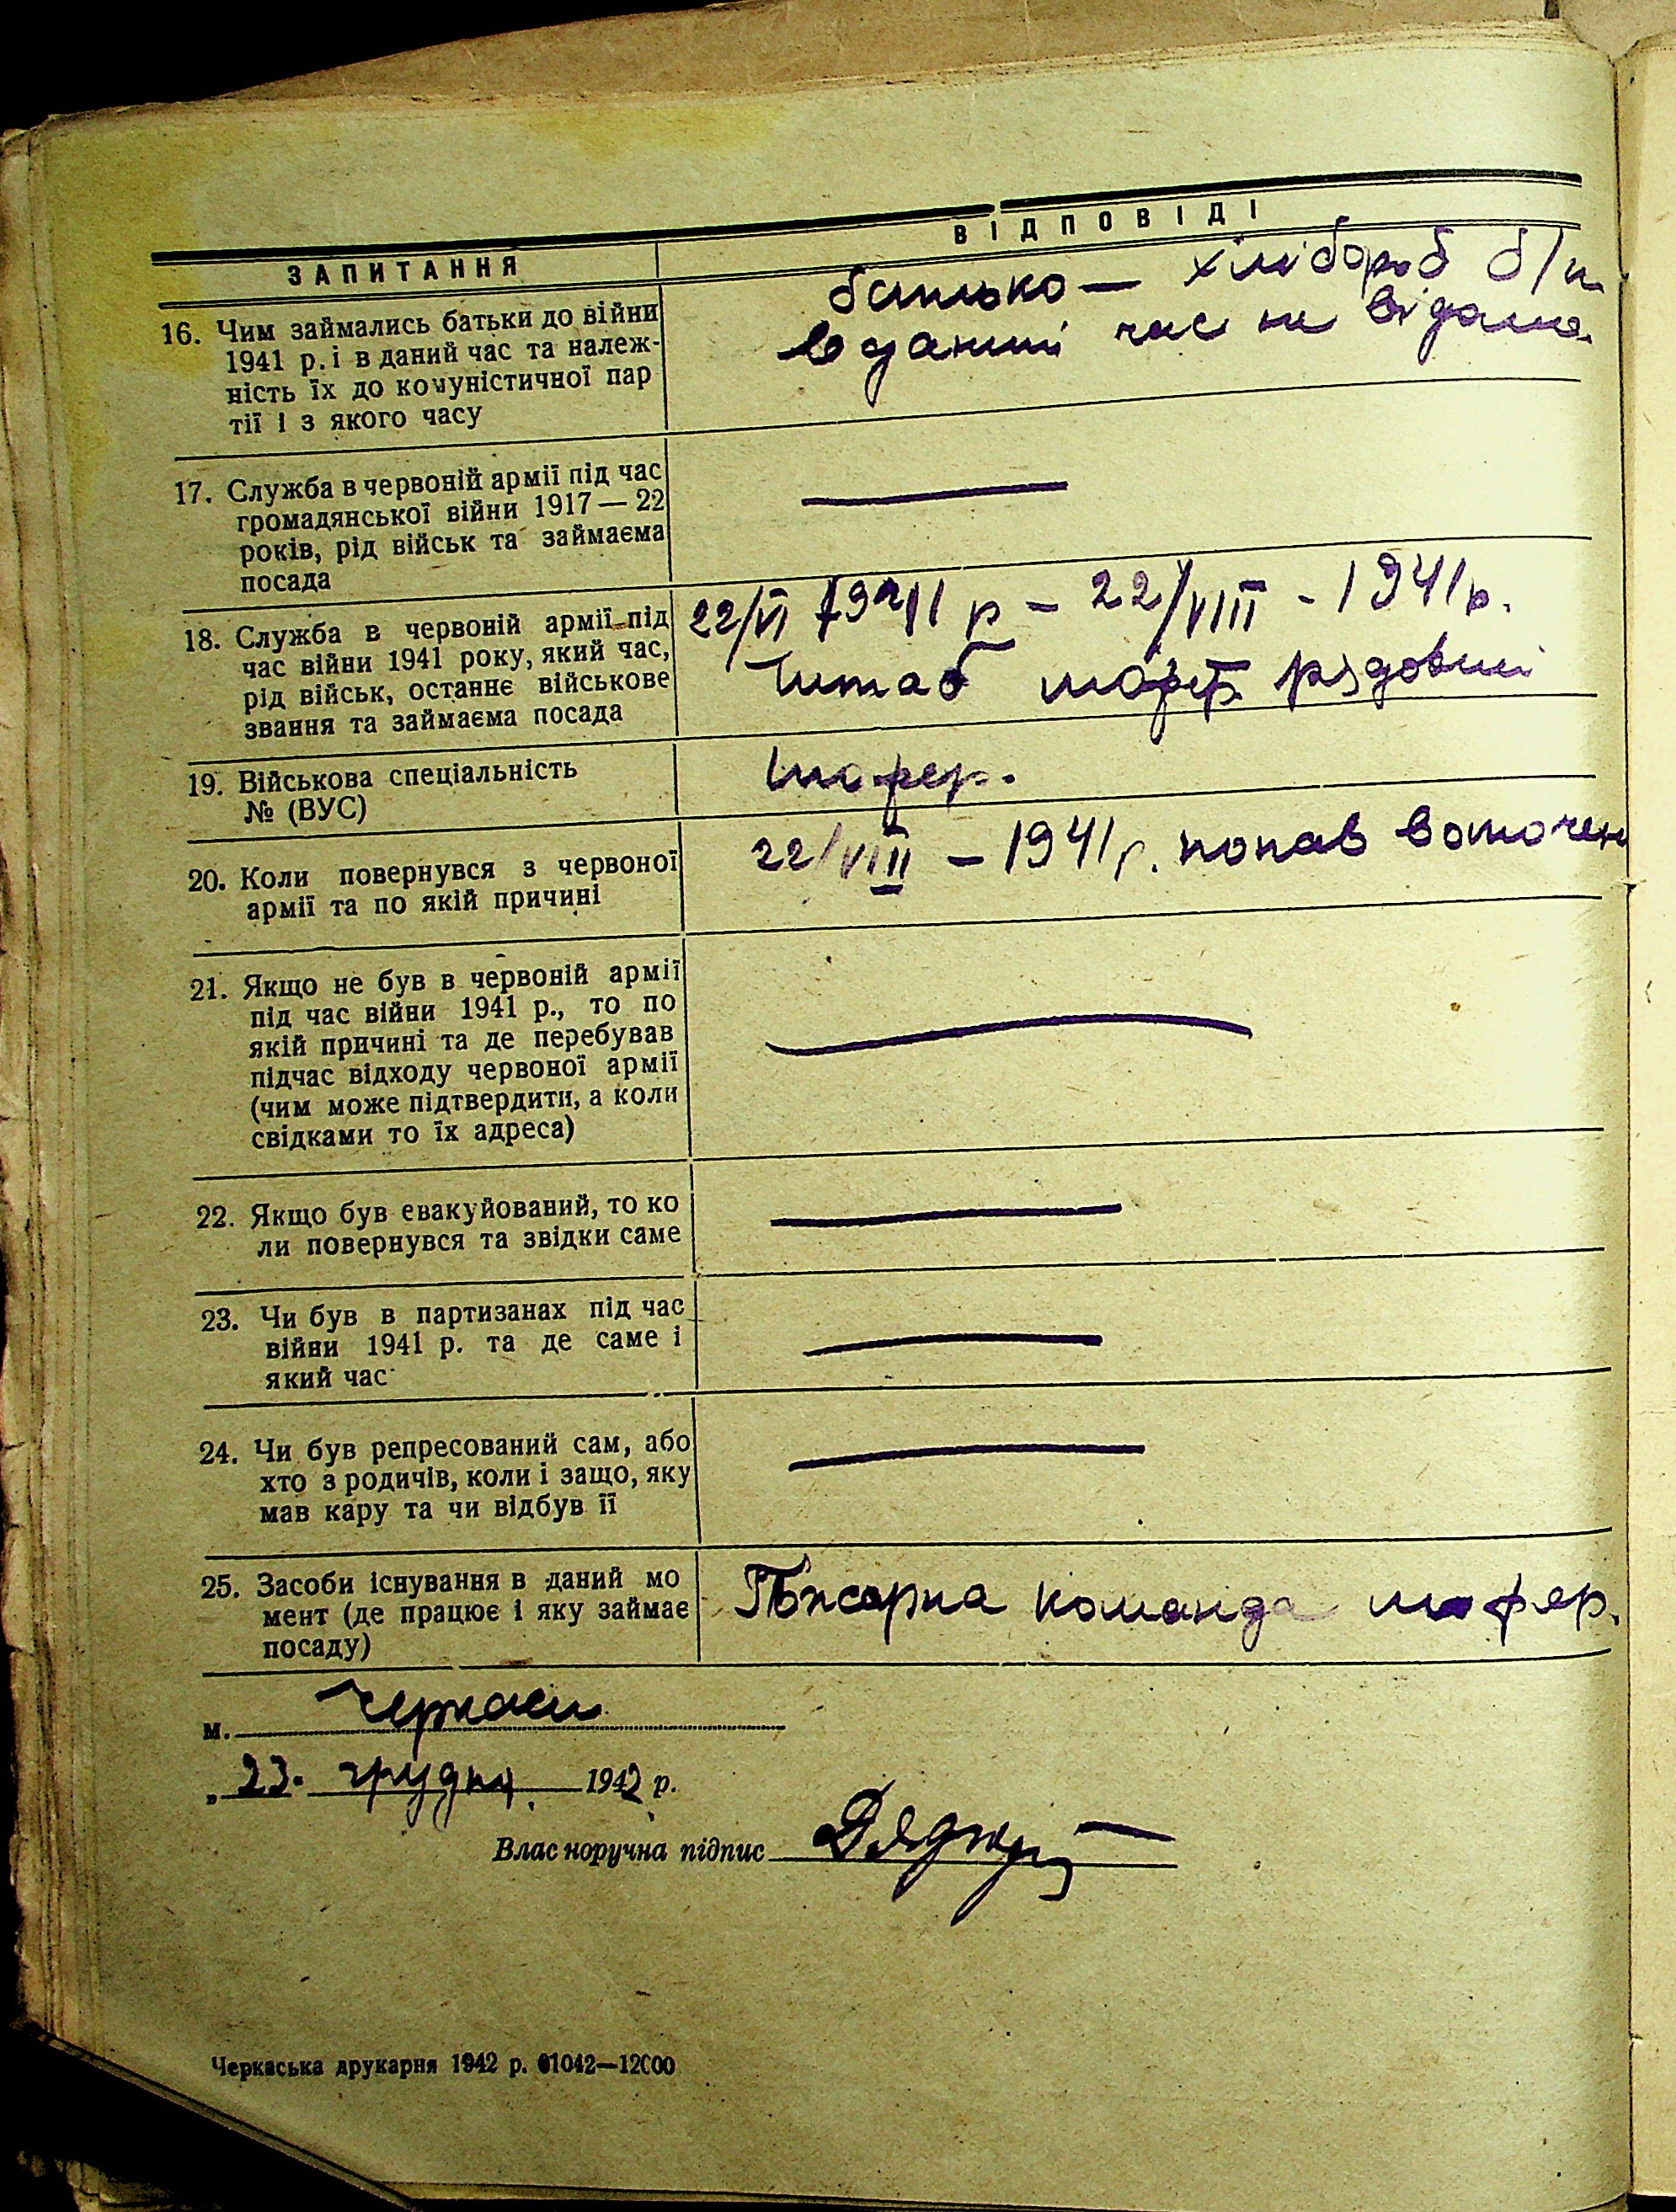 ЗАПИТАННЯ
ВІДПОВІДІ
16. Чим займались батьки до війни
1941 р. і в даний час та належ-
ність їх до комуністичної пар
тії і з якого часу
батько — хлібороб б/п.
в даний час не відомо.
17. Служба в червоній армії під час
громадянської війни 1917 — 22
років, рід військ та займаєма
посада
—
18. Служба в червоній армії під
час війни 1941 року, який час,
рід військ, останнє військове
звання та займаєма посада
22/VI 1941 р – 22/VIII - 1941 р.
Штаб рядовий
19. Військова спеціальність
№ (ВУС)
шофер.
20. Коли повернувся з червоної
армії та по якій причині
22/VIII – 1941 р. попав воточен
21. Якщо не був в червоній армії
під час війни 1941 р., то по
якій причині та де перебував
підчас відходу червоної армії
(чим може підтвердити, а коли
свідками то їх адреса)
—
22. Якщо був евакуйований, то ко
ли повернувся та звідки саме
—
23. Чи був в партизанах під час
війни 1941 р. та де саме і
який час
—
24. Чи був репресований сам, або
хто з родичів, коли і защо, яку
мав кару та чи відбув її
—
25. Засоби існування в даний мо
мент (де працює і яку займає
посаду)
Пожарна команда шофер.
м. Черкаси
„ 23. грудня 1942 р.
Влас норучна підпис
Черкаська друкарня 1942 р. 01042—12000